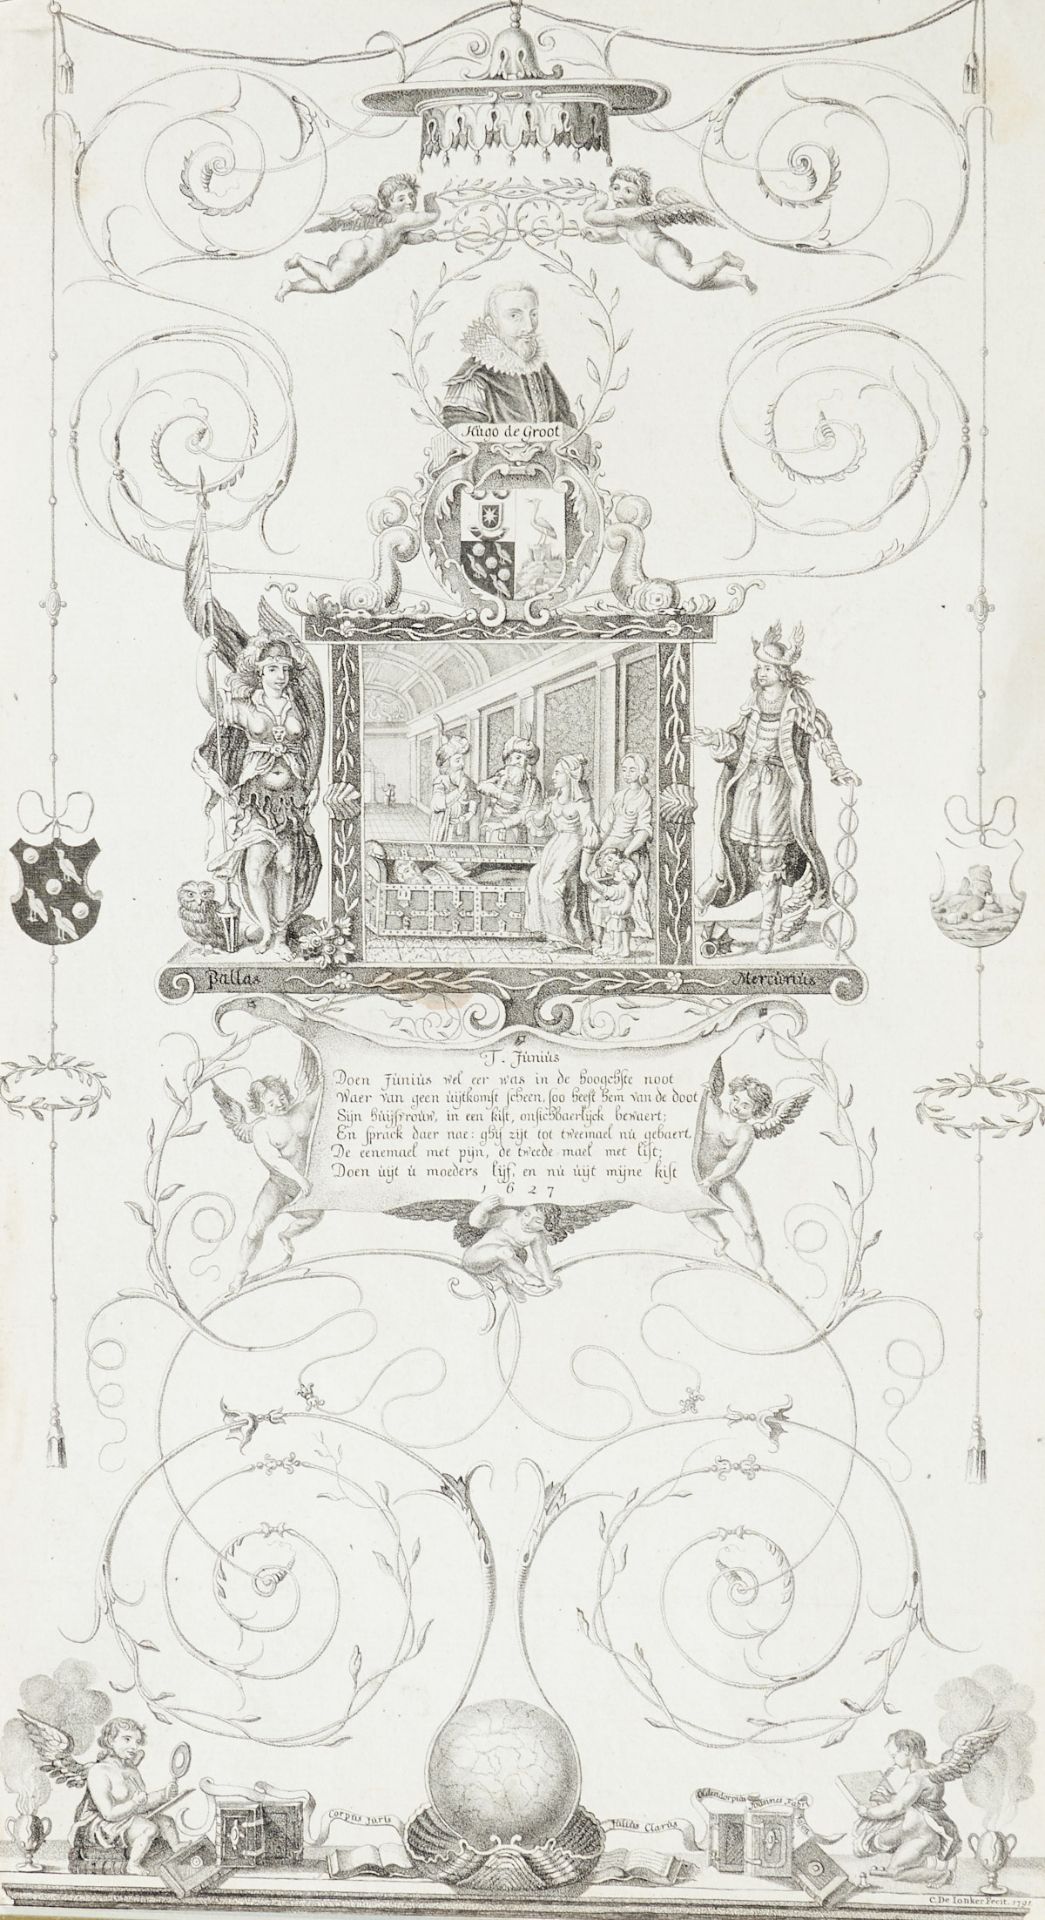 Hugo de Groot
Pallas
Mercurius
T. Junius
Doen Junius wel eer was in de hooghste noot
Waer van geen uijtkomst scheen, soo heeft hem van de doot
Sijn huijsrouw, in een kist, onsichbaerlijck bewaert;
En sprack daer nae: ghij zijt tot tweemael nu gebaert.
De eenemael met pijn, de tweede mael met list;
Doen uijt u moeders lijf, en nu uijt mijne kist
1 6 2 7
Corpus juris
Julius Clarus
Oldendorpius
Joannes Fabri
C. De Jonker Fecit. 1791